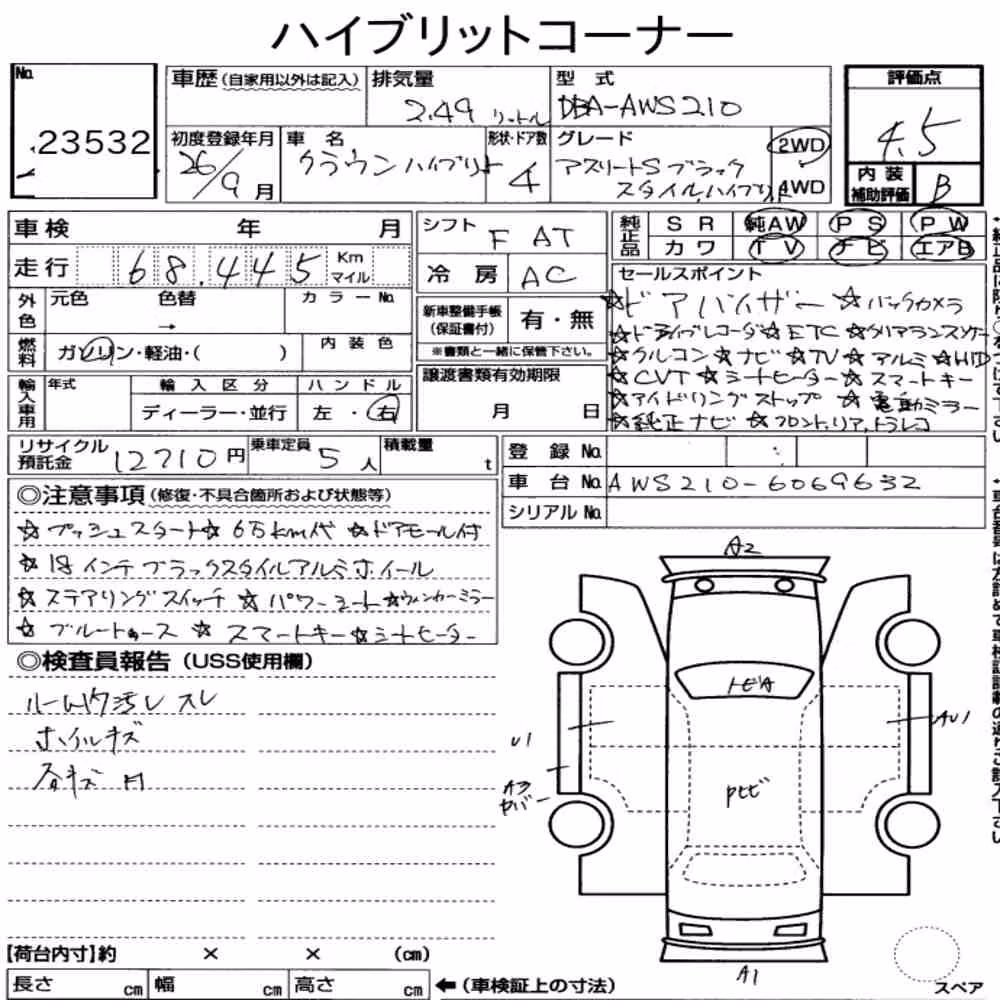 ハイブリットコーナー
No.
23532
車歴(自家用以外は記入)
排気量
2.49 リットル
型式
DBA-AWS210
評価点
4.5
内装補助評価
B
初度登録年月
26/9月
車名
クラウンハイブリット
形状・ドア数
4
グレード
アスリートSブラック
スタイルハイブリット
2WD
4WD
車検 年 月
走行 68,445 Km マイル
シフト
F AT
冷房
AC
純正品
SR 純AW PS PW
カワ TV ナビ エアB
外色
元色 色替 →
カラーNo.
燃料
ガソリン・軽油・( )
内装色
新車整備手帳(保証書付)
有・無
※書類と一緒に保管下さい。
輸入車用
年式
輸入区分
ディーラー・並行
ハンドル
左・右
譲渡書類有効期限
月 日
セールスポイント
☆ドアバイザー ☆バックカメラ
☆ドライブレコーダ☆ETC ☆クリアランスソナー
☆クルコン☆ナビ☆TV☆アルミ☆HID
☆CVT☆シートヒーター☆スマートキー
☆アイドリングストップ ☆電動ミラー
☆純正ナビ☆フロント,リア,ドラレコ
リサイクル預託金 12710円
乗車定員 5人
積載量 t
登録No.
車台No. AWS210-6069632
シリアルNo.
◎注意事項(修復・不具合箇所および状態等)
☆プッシュスタート☆ 65km代 ☆ドアモール付
☆18インチブラックスタイルアルミホイール
☆ステアリングスイッチ ☆パワーシート☆ウィンカーミラー
☆ブルートゥース ☆スマートキー☆シートヒーター
◎検査員報告(USS使用欄)
ルーム内汚レ スレ
ホイルキズ
A2
トビA
U1
AU1
A3
カバー
A1
スペア
【荷台内寸】約 × × (cm)
長さ cm 幅 cm 高さ cm ←(車検証上の寸法)